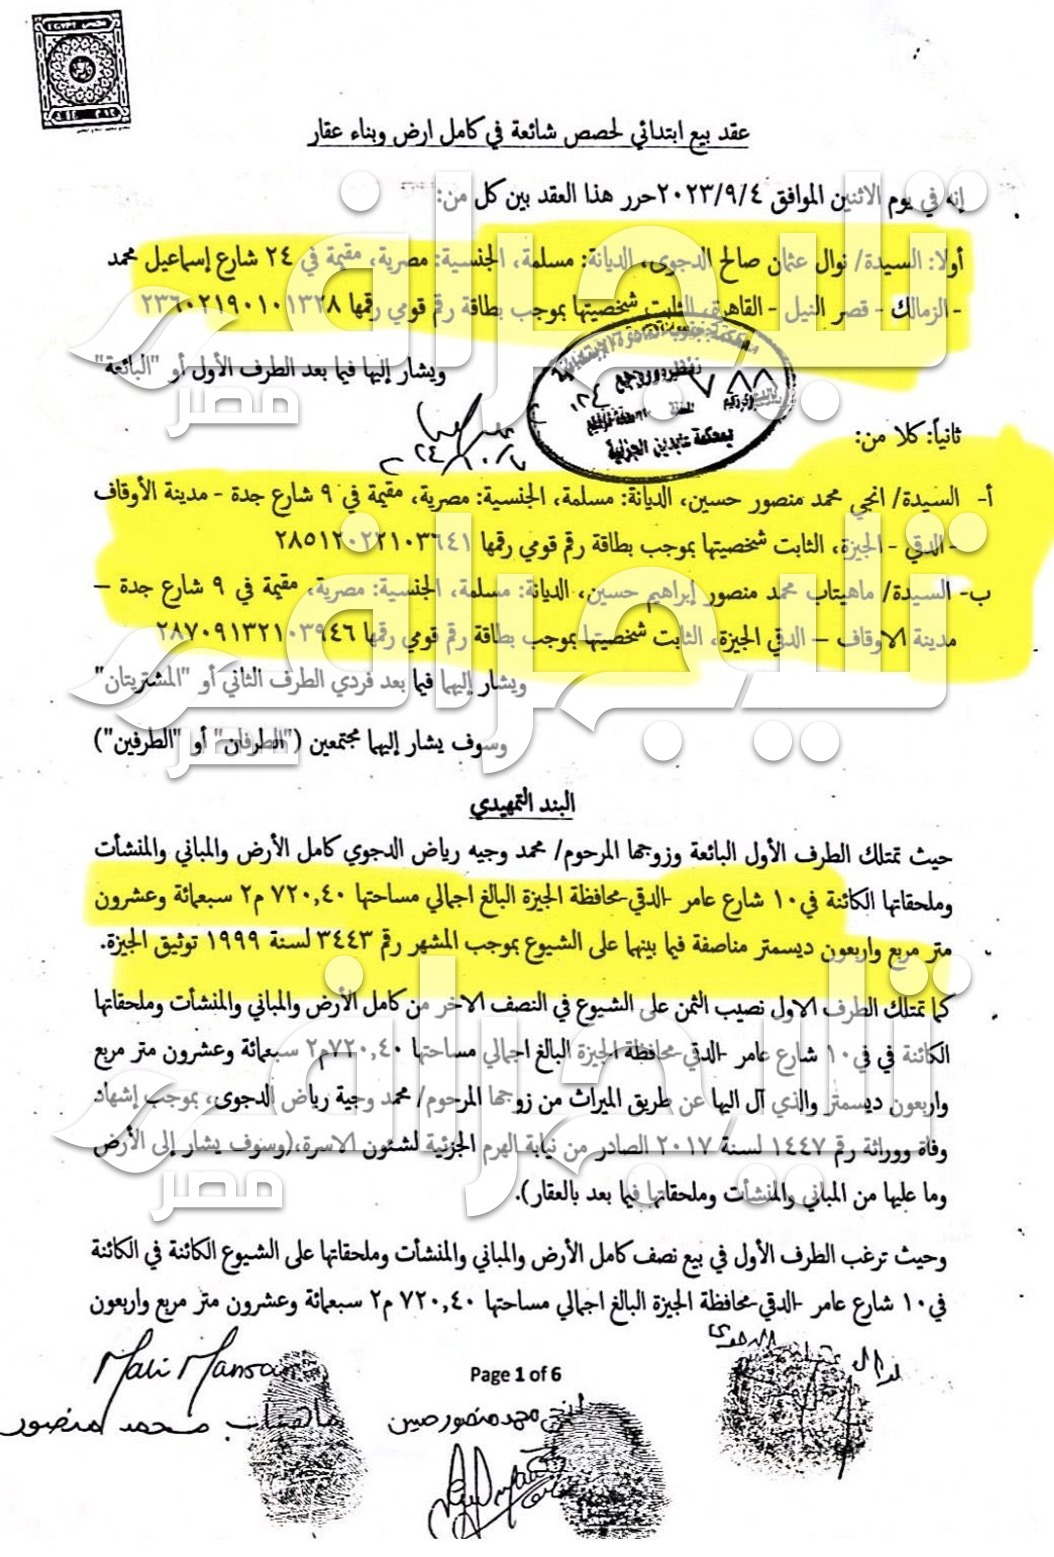 عقد بيع ابتدائي لحصص شائعة في كامل ارض وبناء عقار
إنه في يوم الاثنين الموافق ٢٠٢٣/٩/٤ حرر هذا العقد بين كل من:
أولا: السيدة/ نوال عثمان صالح الدجوى، الديانة: مسلمة، الجنسية: مصرية، مقيمة في ٢٤ شارع إسماعيل محمد
- الزمالك - قصر النيل - القاهرة، الثابت شخصيتها بموجب بطاقة رقم قومي رقمها ٢٣٦٠٢١٩٠١٠١٣٢٨
ويشار إليها فيما بعد الطرف الأول أو "البائعة"
بمحكمة عابدين الجزئية
ثانياً: كلا من:
أ- السيدة/ انجي محمد منصور حسين، الديانة: مسلمة، الجنسية: مصرية، مقيمة في ٩ شارع جدة - مدينة الأوقاف
- الدقي - الجيزة، الثابت شخصيتها بموجب بطاقة رقم قومي رقمها ٢٨٥١٢٠٢٢١٠٣٦٤١
ب- السيدة/ ماهيتاب محمد منصور إبراهيم حسين، الديانة: مسلمة، الجنسية: مصرية، مقيمة في ٩ شارع جدة –
مدينة الاوقاف – الدقي الجيزة، الثابت شخصيتها بموجب بطاقة رقم قومي رقمها ٢٨٧٠٩١٣٢١٠٣٩٤٦
ويشار إليهما فيما بعد فردي الطرف الثاني أو "المشتريتان"
وسوف يشار إليهما مجتمعين ("الطرفان" أو "الطرفين")
البند التمهيدي
حيث تمتلك الطرف الأول البائعة وزوجها المرحوم/ محمد وجيه رياض الدجوي كامل الأرض والمباني والمنشأت
وملحقاتها الكائنة في ١٠ شارع عامر -الدقي-محافظة الجيزة البالغ اجمالي مساحتها ٧٢٠,٤٠ م٢ سبعمائة وعشرون
متر مربع واربعون ديسمتر مناصفة فيما بينهما على الشيوع بموجب المشهر رقم ٣٤٤٣ لسنة ١٩٩٩ توثيق الجيزة.
كما تمتلك الطرف الاول نصيب الثمن على الشيوع في النصف الاخر من كامل الأرض والمباني والمنشأت وملحقاتها
الكائنة في في ١٠ شارع عامر -الدقي-محافظة الجيزة البالغ اجمالي مساحتها ٧٢٠,٤٠م٢ سبعمائة وعشرون متر مربع
واربعون ديسمتر والذي آل اليها عن طريق الميراث من زوجها المرحوم/ محمد وجية رياض الدجوى، بموجب إشهاد
وفاة ووراثة رقم ١٤٤٧ لسنة ٢٠١٧ الصادر من نيابة الهرم الجزئية لشئون الاسرة،(وسوف يشار إلى الأرض
وما عليها من المباني والمنشأت وملحقاتها فيما بعد بالعقار).
وحيث ترغب الطرف الأول في بيع نصف كامل الأرض والمباني والمنشأت وملحقاتها على الشيوع الكائنة في الكائنة
في ١٠ شارع عامر -الدقي-محافظة الجيزة البالغ اجمالي مساحتها ٧٢٠,٤٠ م٢ سبعمائة وعشرون متر مربع واربعون
Page 1 of 6
انجي محمد منصور حسين
Mahi Mansour
ماهيتاب محمد منصور
تليجراف مصر